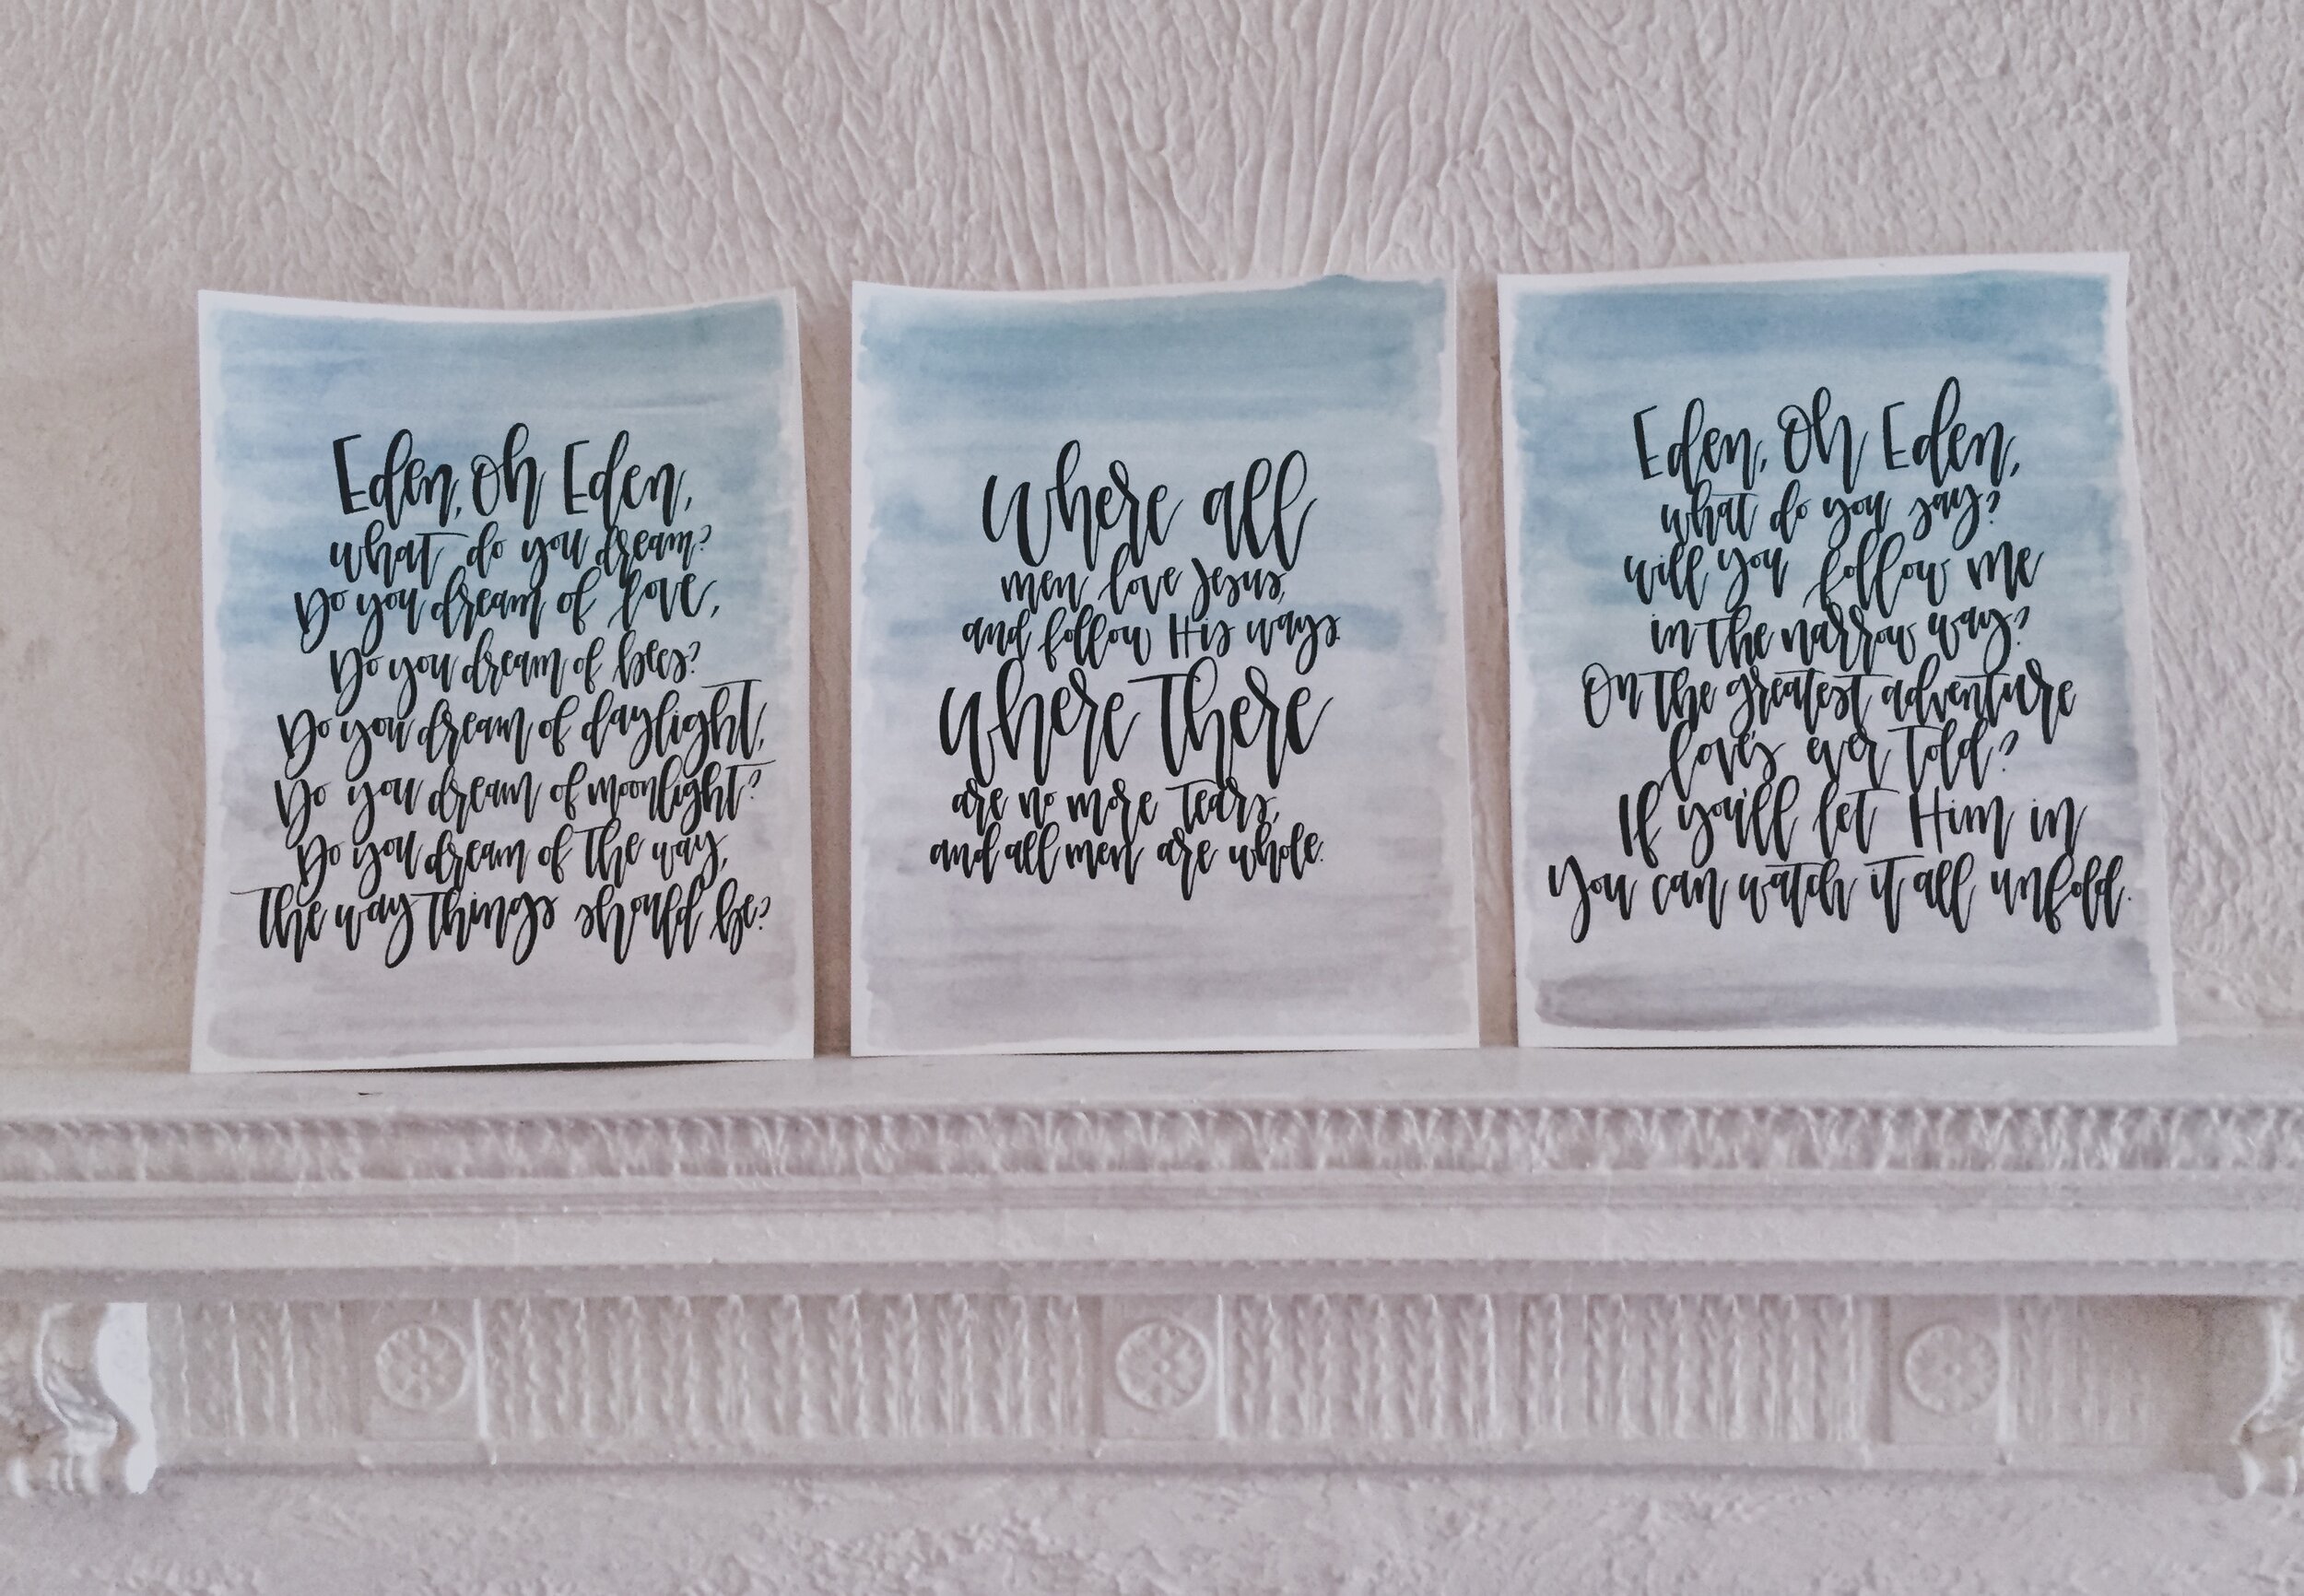 Eden, Oh Eden,
what do you dream?
Do you dream of love,
Do you dream of bees?
Do you dream of daylight,
Do you dream of moonlight?
Do you dream of the way,
The way things should be?
Where all
men love Jesus,
and follow His ways.
Where There
are no more tears,
and all men are whole.
Eden, Oh Eden,
what do you say?
will you follow me
in the narrow way?
On the greatest adventure
love's ever told?
If you'll let Him in
You can watch it all unfold.